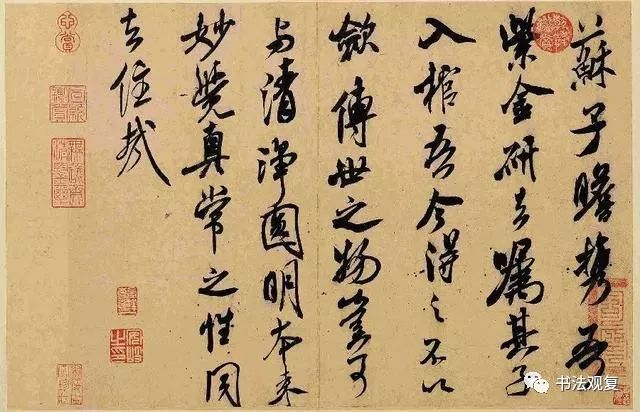 蘇子瞻携吾
紫金研去嘱其子
入棺吾今得之不以
斂傳世之物豈可
與清淨圓明本來
妙覺真常之性同
去住哉
书法观复